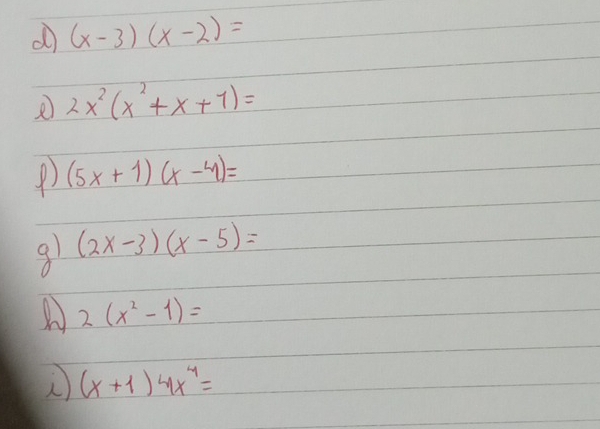 d) (x-3) (x-2) =
e) 2x²(x²+x+1)=
f) (5x+1) (x-4)=
g) (2x-3) (x-5)=
h) 2 (x²-1)=
i) (x+1) 4x⁴=